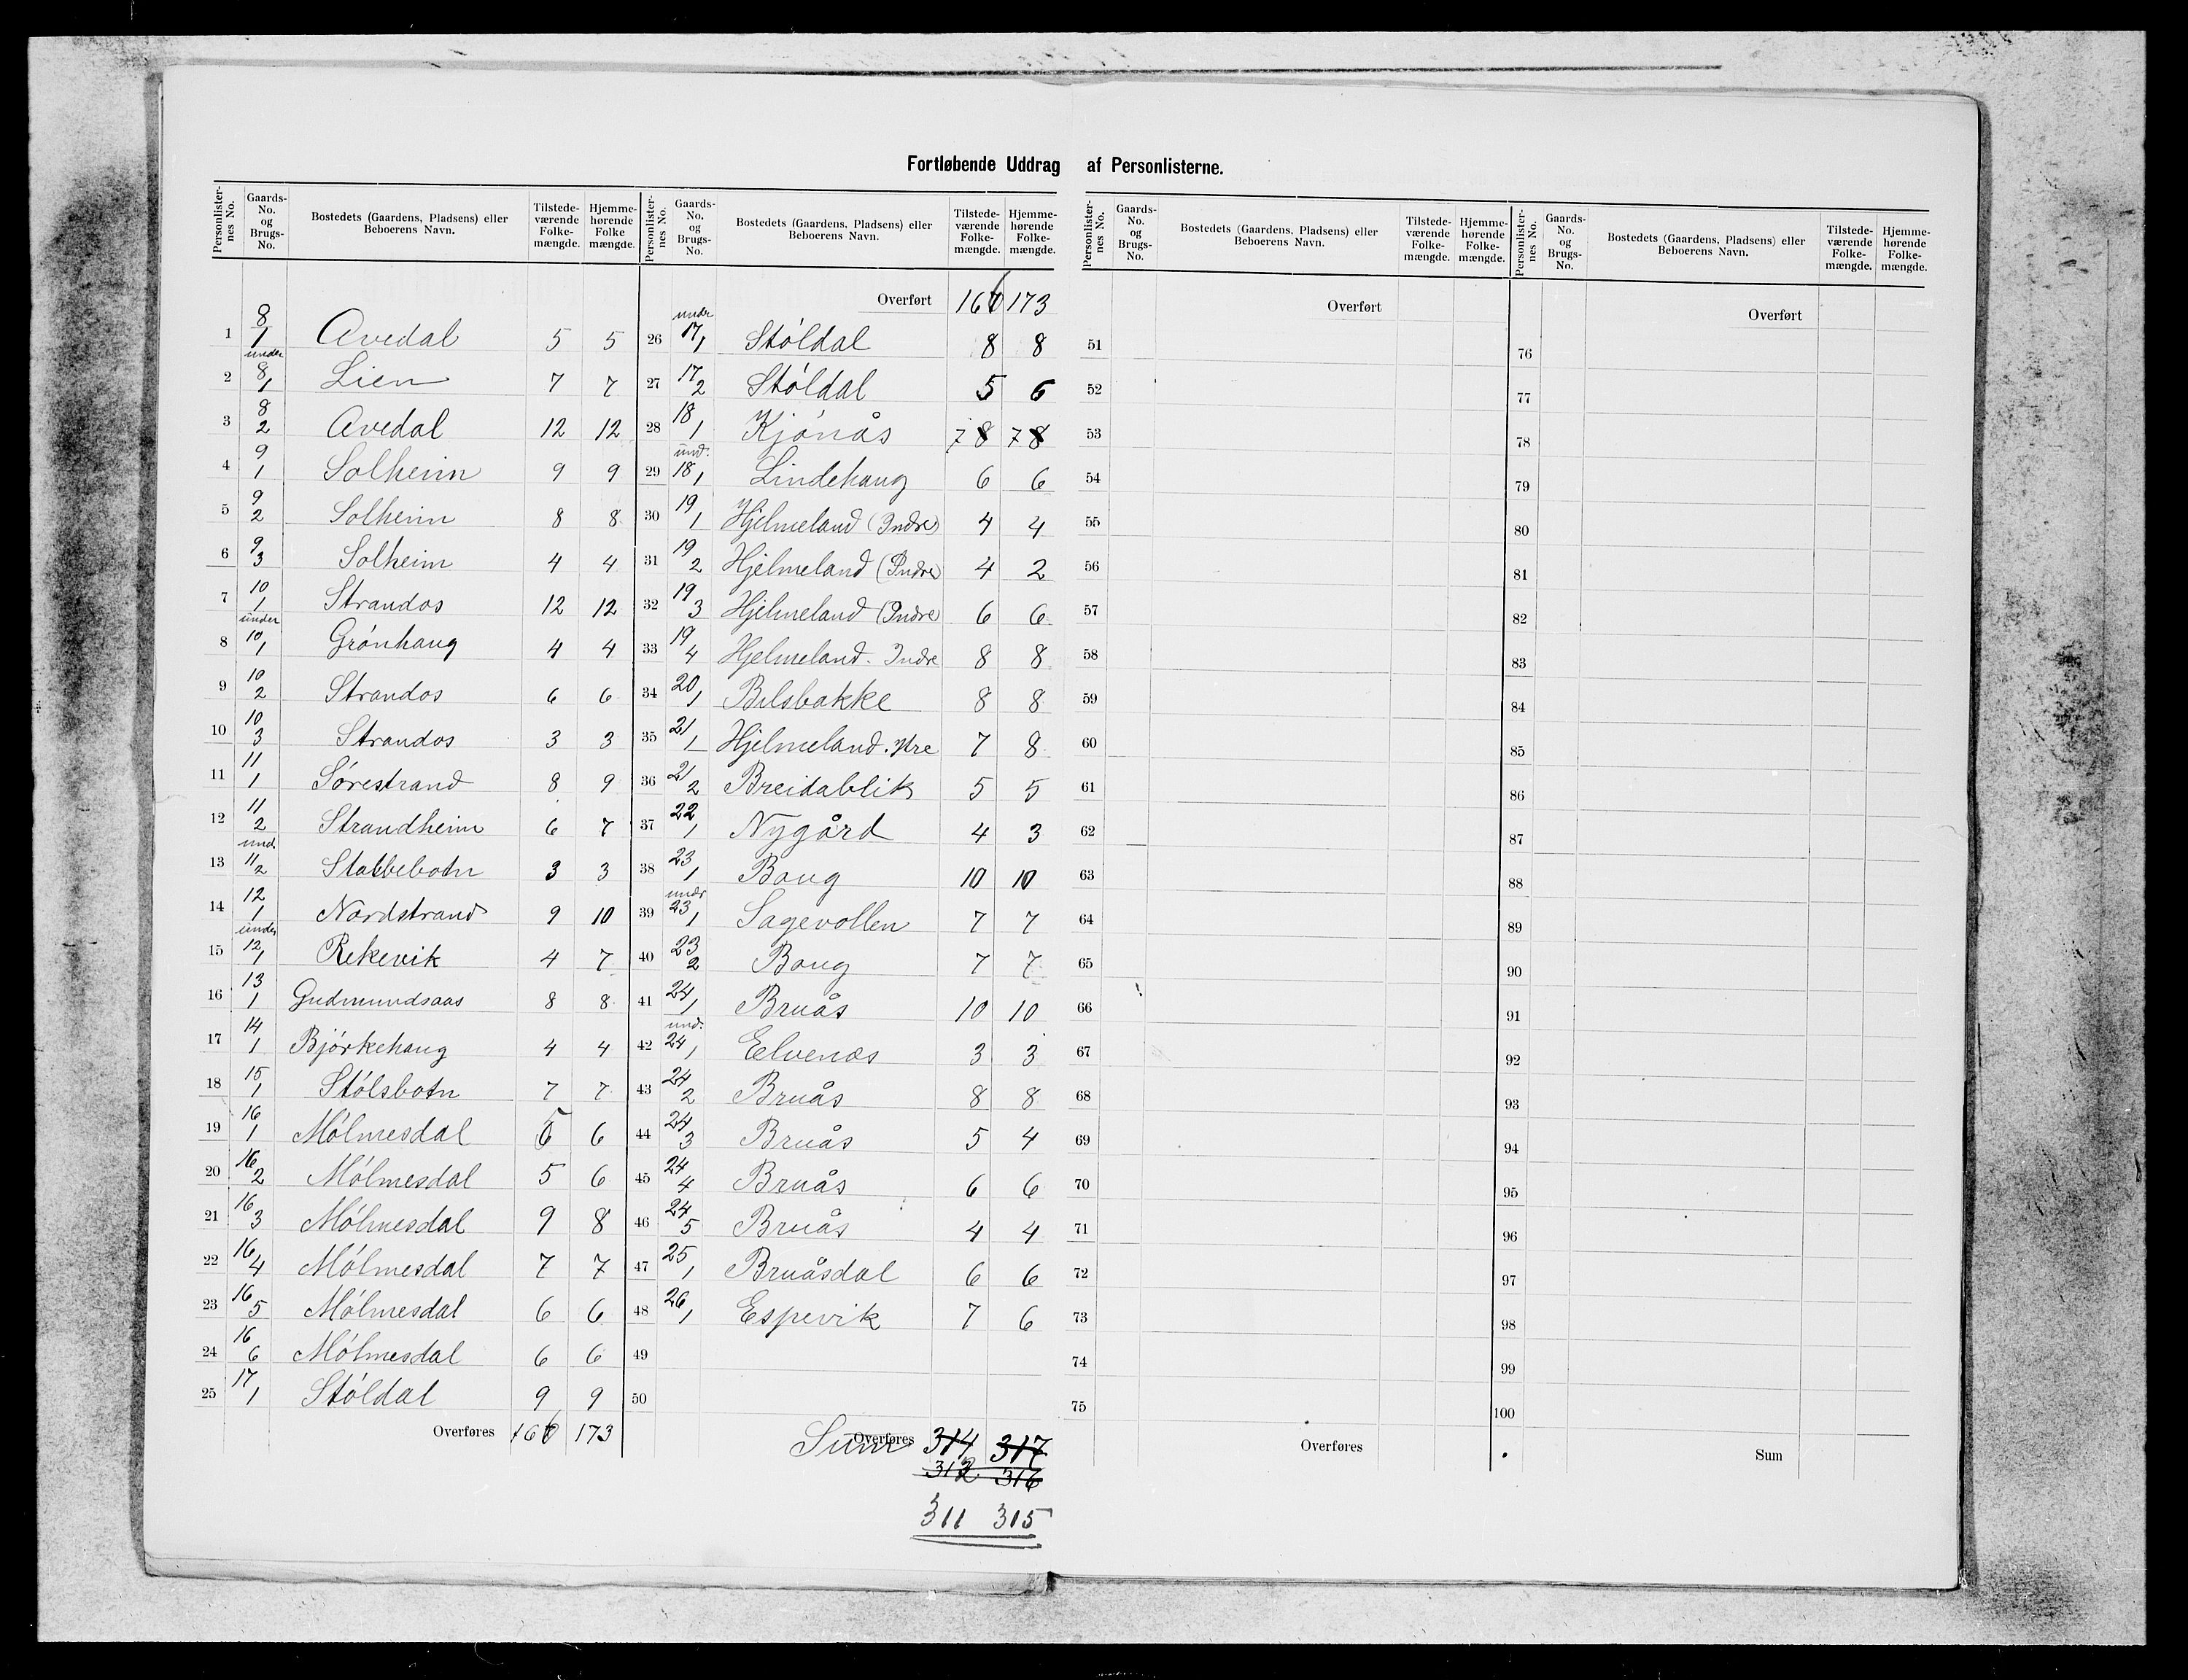 Fortløbende Uddrag af Personlisterne.
Personlister-nes No. | Gaards-No. og Brugs-No. | Bostedets (Gaardens, Pladsens) eller Beboerens Navn. | Tilstede-værende Folke-mængde. | Hjemme-hørende Folke mængde.
1 8/1 Avedal 5 5
2 under 8/1 Lien 7 7
3 8/2 Avedal 12 12
4 9/1 Solheim 9 9
5 9/2 Solheim 8 8
6 9/3 Solheim 4 4
7 10/1 Strandos 12 12
8 under 10/1 Grónhaug 4 4
9 10/2 Strandos 6 6
10 10/3 Strandos 3 3
11 11/1 Sórestrand 8 9
12 11/2 Strandheim 6 7
13 und. 11/2 Stabbebotn 3 3
14 12/1 Nordstrand 9 10
15 under 12/1 Rekevik 4 7
16 13/1 Gudmundsaas 8 8
17 14/1 Bjórkehaug 4 4
18 15/1 Stólsbotn 7 7
19 16/1 Mólmesdal 5 6
20 16/2 Mólmesdal 5 6
21 16/3 Mólmesdal 9 8
22 16/4 Mólmesdal 7 7
23 16/5 Mólmesdal 6 6
24 16/6 Mólmesdal 6 6
25 17/1 Stóldal 9 9
Overføres 166 173
Personlister-nes No. | Gaards-No. og Brugs-No. | Bostedets (Gaardens, Pladsens) eller Beboerens Navn. | Tilstede-værende Folke-mængde. | Hjemme-hørende Folke-mængde.
Overført 166 173
26 under 17/1 Stóldal 8 8
27 17/2 Stóldal 5 6
28 18/1 Kjónås 7 8 7 8
29 und. 18/1 Lindehaug 6 6
30 19/1 Hjelmeland (Indre) 4 4
31 19/2 Hjelmeland (Indre) 4 2
32 19/3 Hjelmeland (Indre) 6 6
33 19/4 Hjelmeland. Indre 8 8
34 20/1 Bilsbakke 8 8
35 21/1 Hjelmeland. Ytre 7 8
36 21/2 Breidablik 5 5
37 22/1 Nygård 4 3
38 23/1 Baug 10 10
39 under 23/1 Sagevollen 7 7
40 23/2 Baug 7 7
41 24/1 Bruås 10 10
42 und. 24/1 Eelvenæs 3 3
43 24/2 Bruås 8 8
44 24/3 Bruås 5 4
45 24/4 Bruås 6 6
46 24/5 Bruås 4 4
47 25/1 Bruåsdal 6 6
48 26/1 Espevik 7 6
49
50
Overføres Sum 314 317
312 316
311 315
Personlister-nes No. | Gaards-No. og Brugs-No. | Bostedets (Gaardens, Pladsens) eller Beboerens Navn. | Tilstede-værende Folke-mængde. | Hjemme-hørende Folke-mængde.
Overført
51
52
53
54
55
56
57
58
59
60
61
62
63
64
65
66
67
68
69
70
71
72
73
74
75
Overføres
Personlister-nes No. | Gaards-No. og Brugs-No. | Bostedets (Gaardens, Pladsens) eller Beboerens Navn. | Tilstede-værende Folke-mængde. | Hjemme-hørende Folke-mængde.
Overført
76
77
78
79
80
81
82
83
84
85
86
87
88
89
90
91
92
93
94
95
96
97
98
99
100
Sum